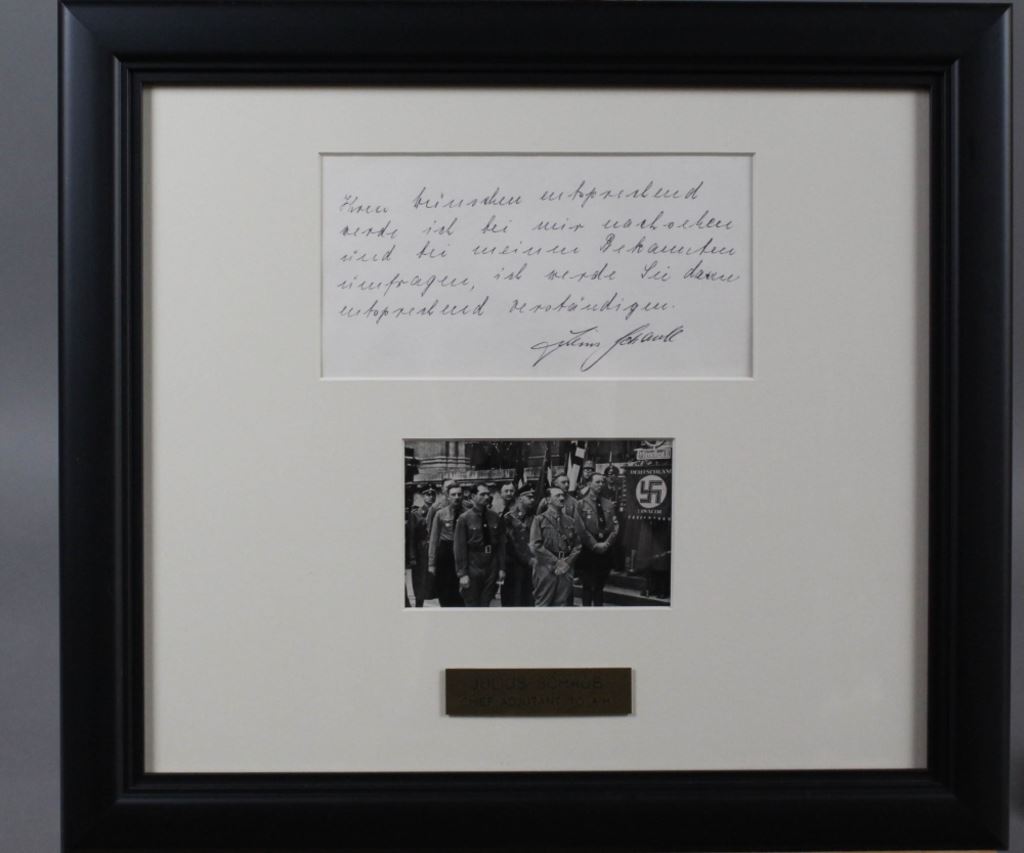 Ihren Wünschen entsprechend
werde ich bei mir nachsehen
und bei meinen Bekannten
umfragen, ich werde Sie dann
entsprechend verständigen.
Julius Schaub
DEUTSCHLAND
ERWACHE
JULIUS SCHAUB
CHIEF ADJUTANT TO A.H.